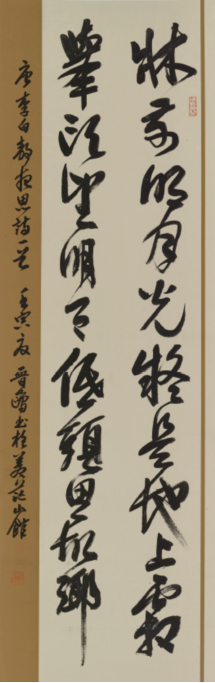 牀前明月光疑是地上霜
舉頭望明月低頭思故鄉
唐李白靜夜思詩一首 壬寅夏 晉 書於 山館